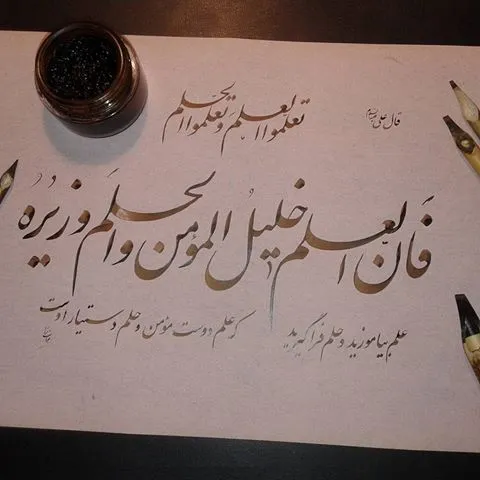 قال علی
تعلموا العلم و تعلموا الحلم
فَان العلم خلیلُ المؤمن والحلم وزیرُهُ
علم بیاموزید و حلم فرا گیرید
که علم دوست مؤمن و حلم دستیار اوست